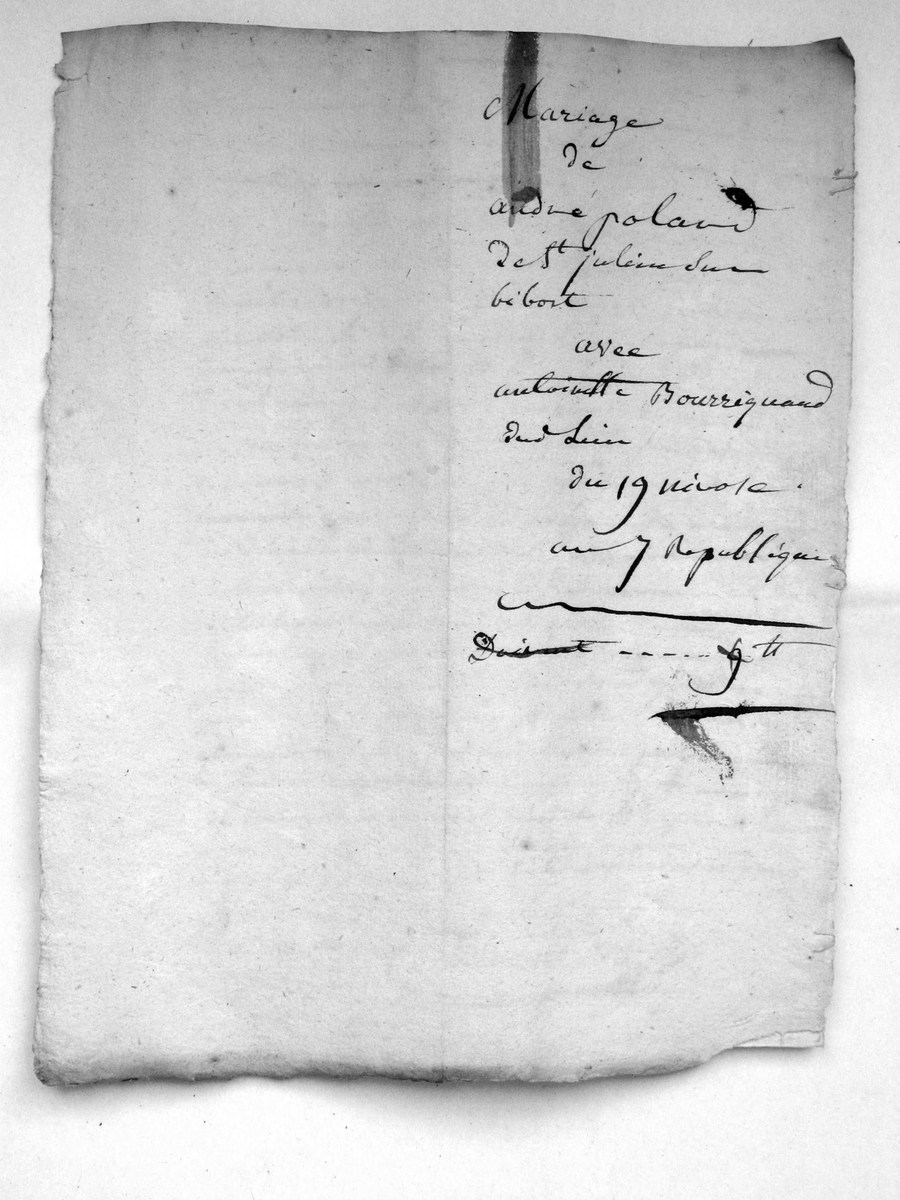 Mariage
de
andré polard
de St julien Sur
bibost
avec
antoinette Bourriquand
dud lieu
du 19 nivose
an 7 Republiquain
Doivent ----- 9 tt